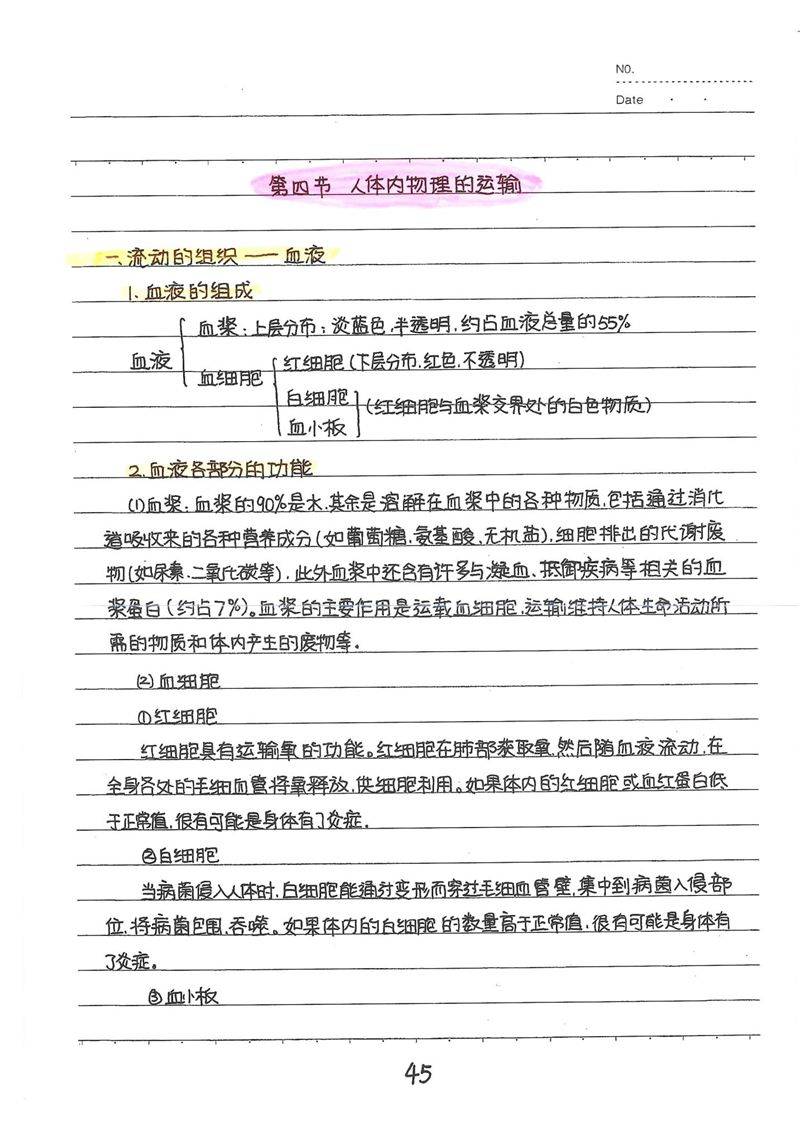 NO.
Date
第四节 人体内物理的运输
一、流动的组织——血液
1.血液的组成
血浆:上层分布;淡蓝色,半透明,约占血液总量的55%
血液
红细胞(下层分布,红色,不透明)
血细胞
白细胞
(红细胞与血浆交界处的白色物质)
血小板
2.血液各部分的功能
(1)血浆:血浆的90%是水,其余是溶解在血浆中的各种物质,包括通过消化
道吸收来的各种营养成分(如葡萄糖,氨基酸、无机盐),细胞排出的代谢废
物(如尿素、二氧化碳等),此外血浆中还含有许多与凝血、抵御疾病等相关的血
浆蛋白(约占7%)。血浆的主要作用是运载血细胞,运输维持人体生命活动所
需的物质和体内产生的废物等.
(2)血细胞
①红细胞
红细胞具有运输氧的功能。红细胞在肺部获取氧,然后随血液流动,在
全身各处的毛细血管将氧释放,供细胞利用。如果体内的红细胞或血红蛋白低
于正常值,很有可能是身体有了炎症.
②白细胞
当病菌侵入人体时,白细胞能通过变形而穿过毛细血管壁,集中到病菌入侵部
位,将病菌包围,吞噬。如果体内的白细胞的数量高于正常值,很有可能是身体有
了炎症。
③血小板
45